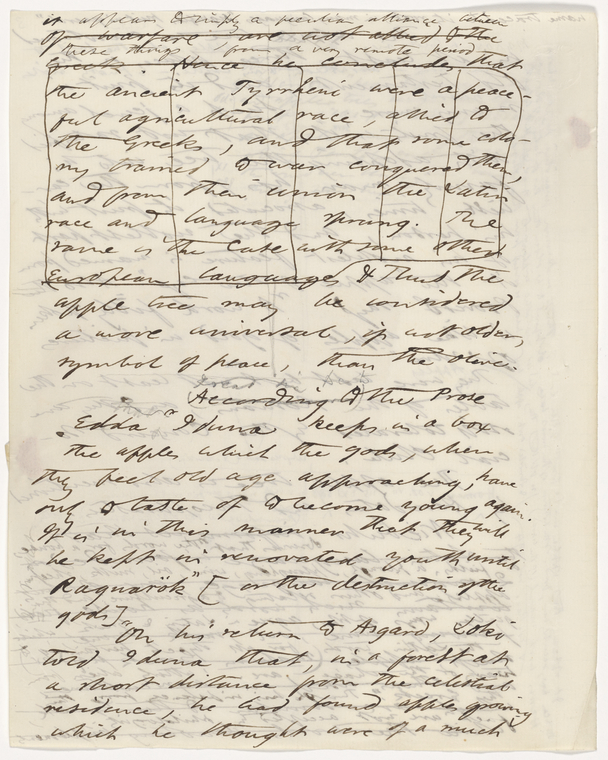 of warfare are not allied to the
these things, from a very remote period
Greek Hence he concludes that
the ancient Tyrrheni were a peace-
ful agricultural race, allied to
the Greeks, and that some colo-
ny trained to war conquered them,
and from their union the Latin
race and language sprung. The
same is the case with some other
European languages & thus the
apple tree may be considered
a more universal, if not older,
symbol of peace, than the olive.
According to the Prose
Edda "Iduna keeps in a box
the apples which the gods, when
they feel old age approaching, have
only to taste of to become young again.
It is in this manner that they will
be kept in renovated youth until
Ragnarök" [or the destruction of the
gods]
"On his return to Asgard, Loki
told Iduna that, in a forest at
a short distance from the celestial
residence, he had found apples growing
which he thought were of a much